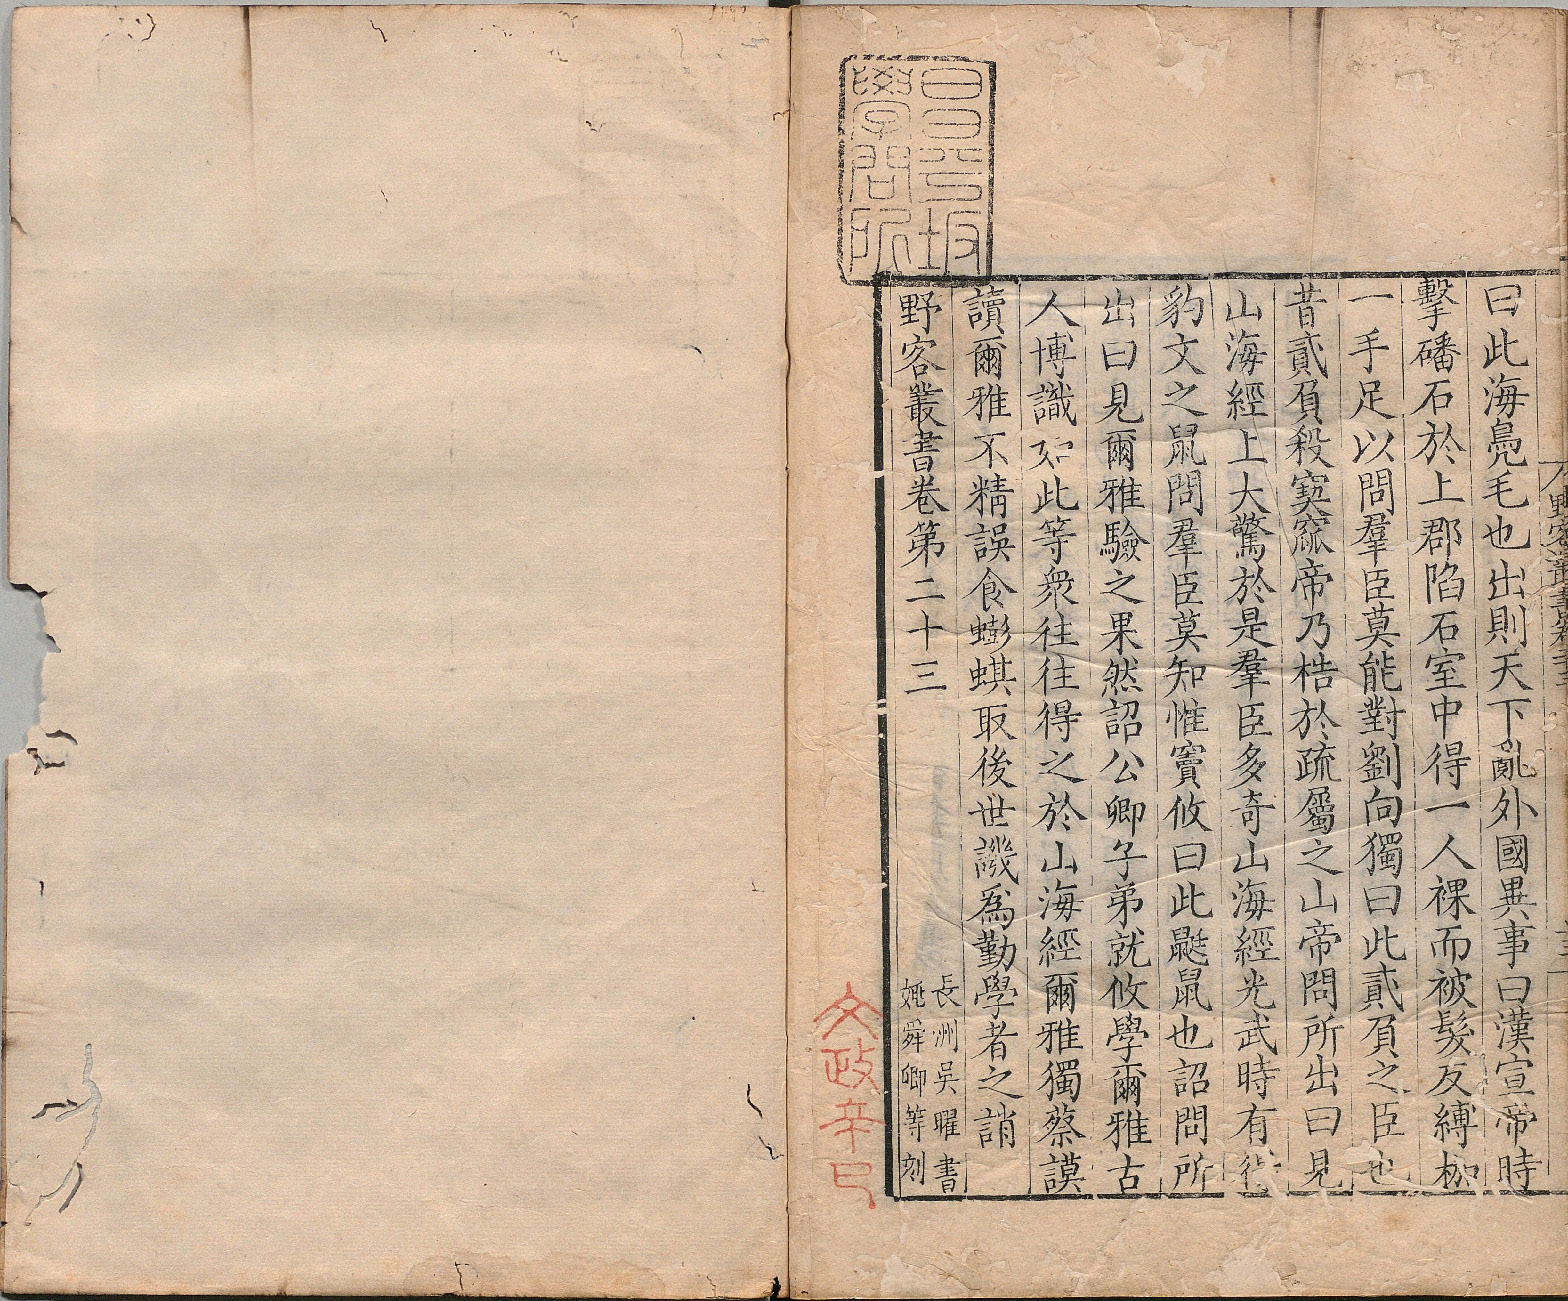 曰此海鳧毛也出則天下亂外國異事曰漢宣帝時
擊磻石於上郡陷石室中得一人裸而被髮反縛械
一手足以問羣臣莫能對劉向獨曰此貳負之臣也
昔貳負殺窫窳帝乃梏於疏屬之山帝問所出曰見
山海經上大驚於是羣臣多奇山海經光武時有得
豹文之鼠問羣臣莫知惟竇攸曰此鼮鼠也詔問所
出曰見爾雅驗之果然詔公卿子弟就攸學爾雅古
人博識如此等衆往往得之於山海經爾雅獨蔡謨
讀爾雅不精誤食蟛蜞取後世譏爲勤學者之誚
野客叢書卷第二十三
長洲吳曜書
姚舜卿等刻
昌平坂
學問所
文政辛巳